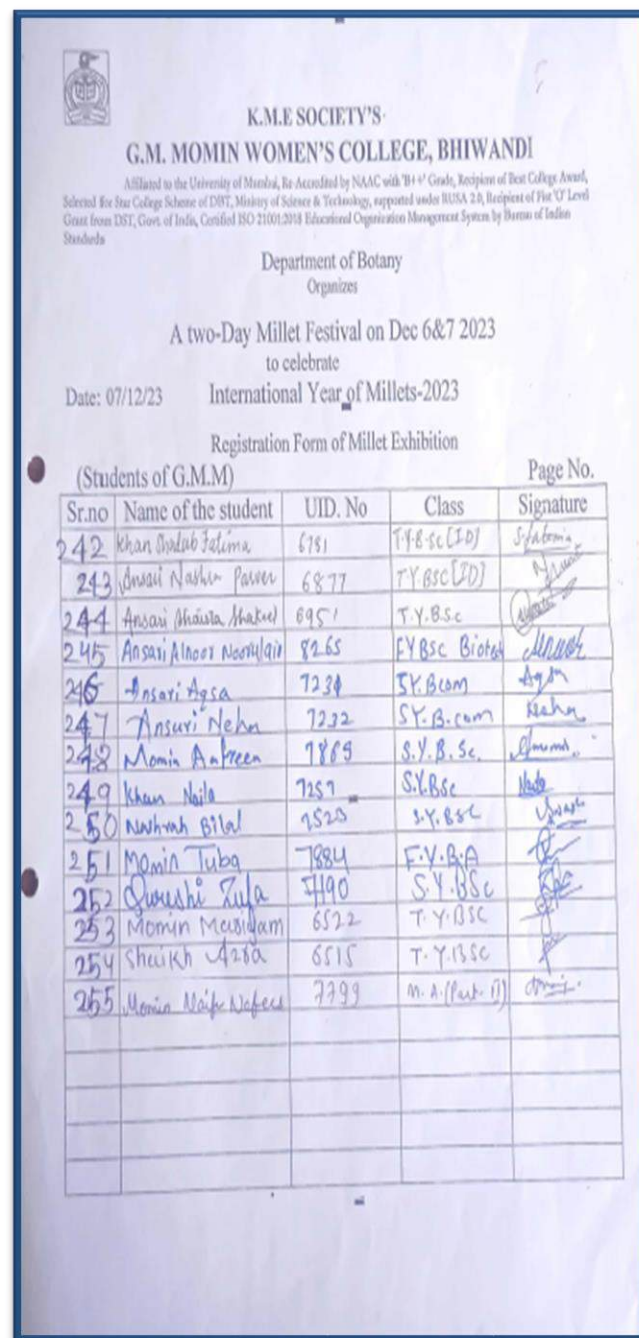 K.M.E SOCIETY'S
G.M. MOMIN WOMEN'S COLLEGE, BHIWANDI
Affiliated to the University of Mumbai, Re-Accredited by NAAC with 'B++' Grade, Recipient of Best College Award,
Selected for Star College Scheme of DBT, Ministry of Science & Technology, supported under RUSA 2.0, Recipient of Fist 'O' Level
Grant from DST, Govt. of India, Certified ISO 21001:2018 Educational Organization Management System by Bureau of Indian
Standards
Department of Botany
Organizes
A two-Day Millet Festival on Dec 6&7 2023
to celebrate
Date: 07/12/23 International Year of Millets-2023
Registration Form of Millet Exhibition
(Students of G.M.M) Page No.
Sr.no Name of the student UID. No Class Signature
242 Khan Fatima 6781 T.Y.B.Sc [ID]
243 Ansari 6877 T.Y.BSC [ID]
244 Ansari 6951 T.Y.B.Sc
245 Ansari Alnoor 8265 FYBSc Biotech
246 Ansari Aqsa 7234 SY.Bcom Aqsa
247 Ansari Neha 7232 SY.B.com Neha
248 Momin Afreen 7865 S.Y.B.Sc.
249 Khan Naila 7257 S.Y.BSc
250 Nashrah Bilal 2523 S.Y.BSC
251 Momin Tuba 7884 F.Y.B.A
252 Qureshi Zufa S.Y.BSc
253 Momin 6522 T.Y.BSC
254 Sheikh Azra 6515 T.Y.BSC
255 Momin 7799 M.A.(Part-II)